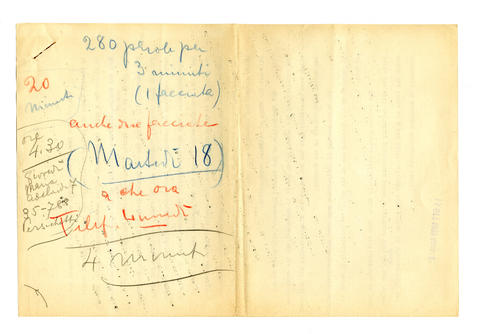 280 parole per
3 minuti
(1 facciata)
20
minuti
anche due facciate
ore
4.30
(Martedì 18)
giovedì
Maria
Adelaide 7
35-788
a che ora
Telef. Lunedì
4 minuti